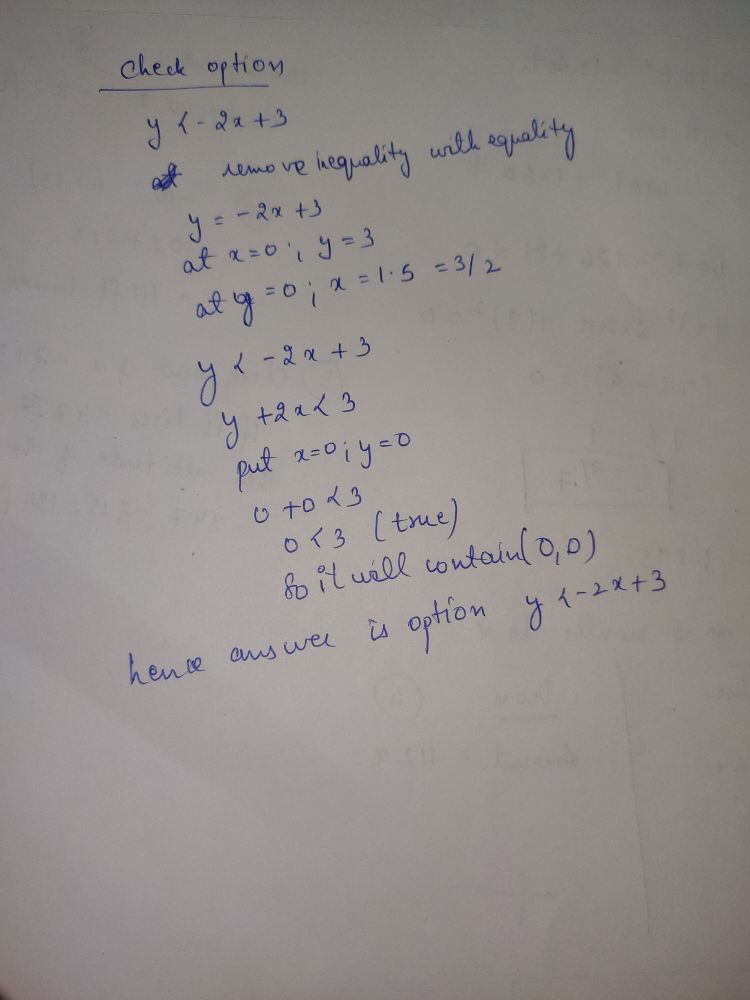 Check option
y < -2x + 3
remove inequality with equality
y = -2x + 3
at x=0 ; y = 3
at y = 0 ; x = 1.5 = 3/2
y < -2x + 3
y + 2x < 3
put x=0 ; y=0
0 + 0 < 3
0 < 3 (true)
So it will contain (0,0)
hence answer is option y < -2x + 3